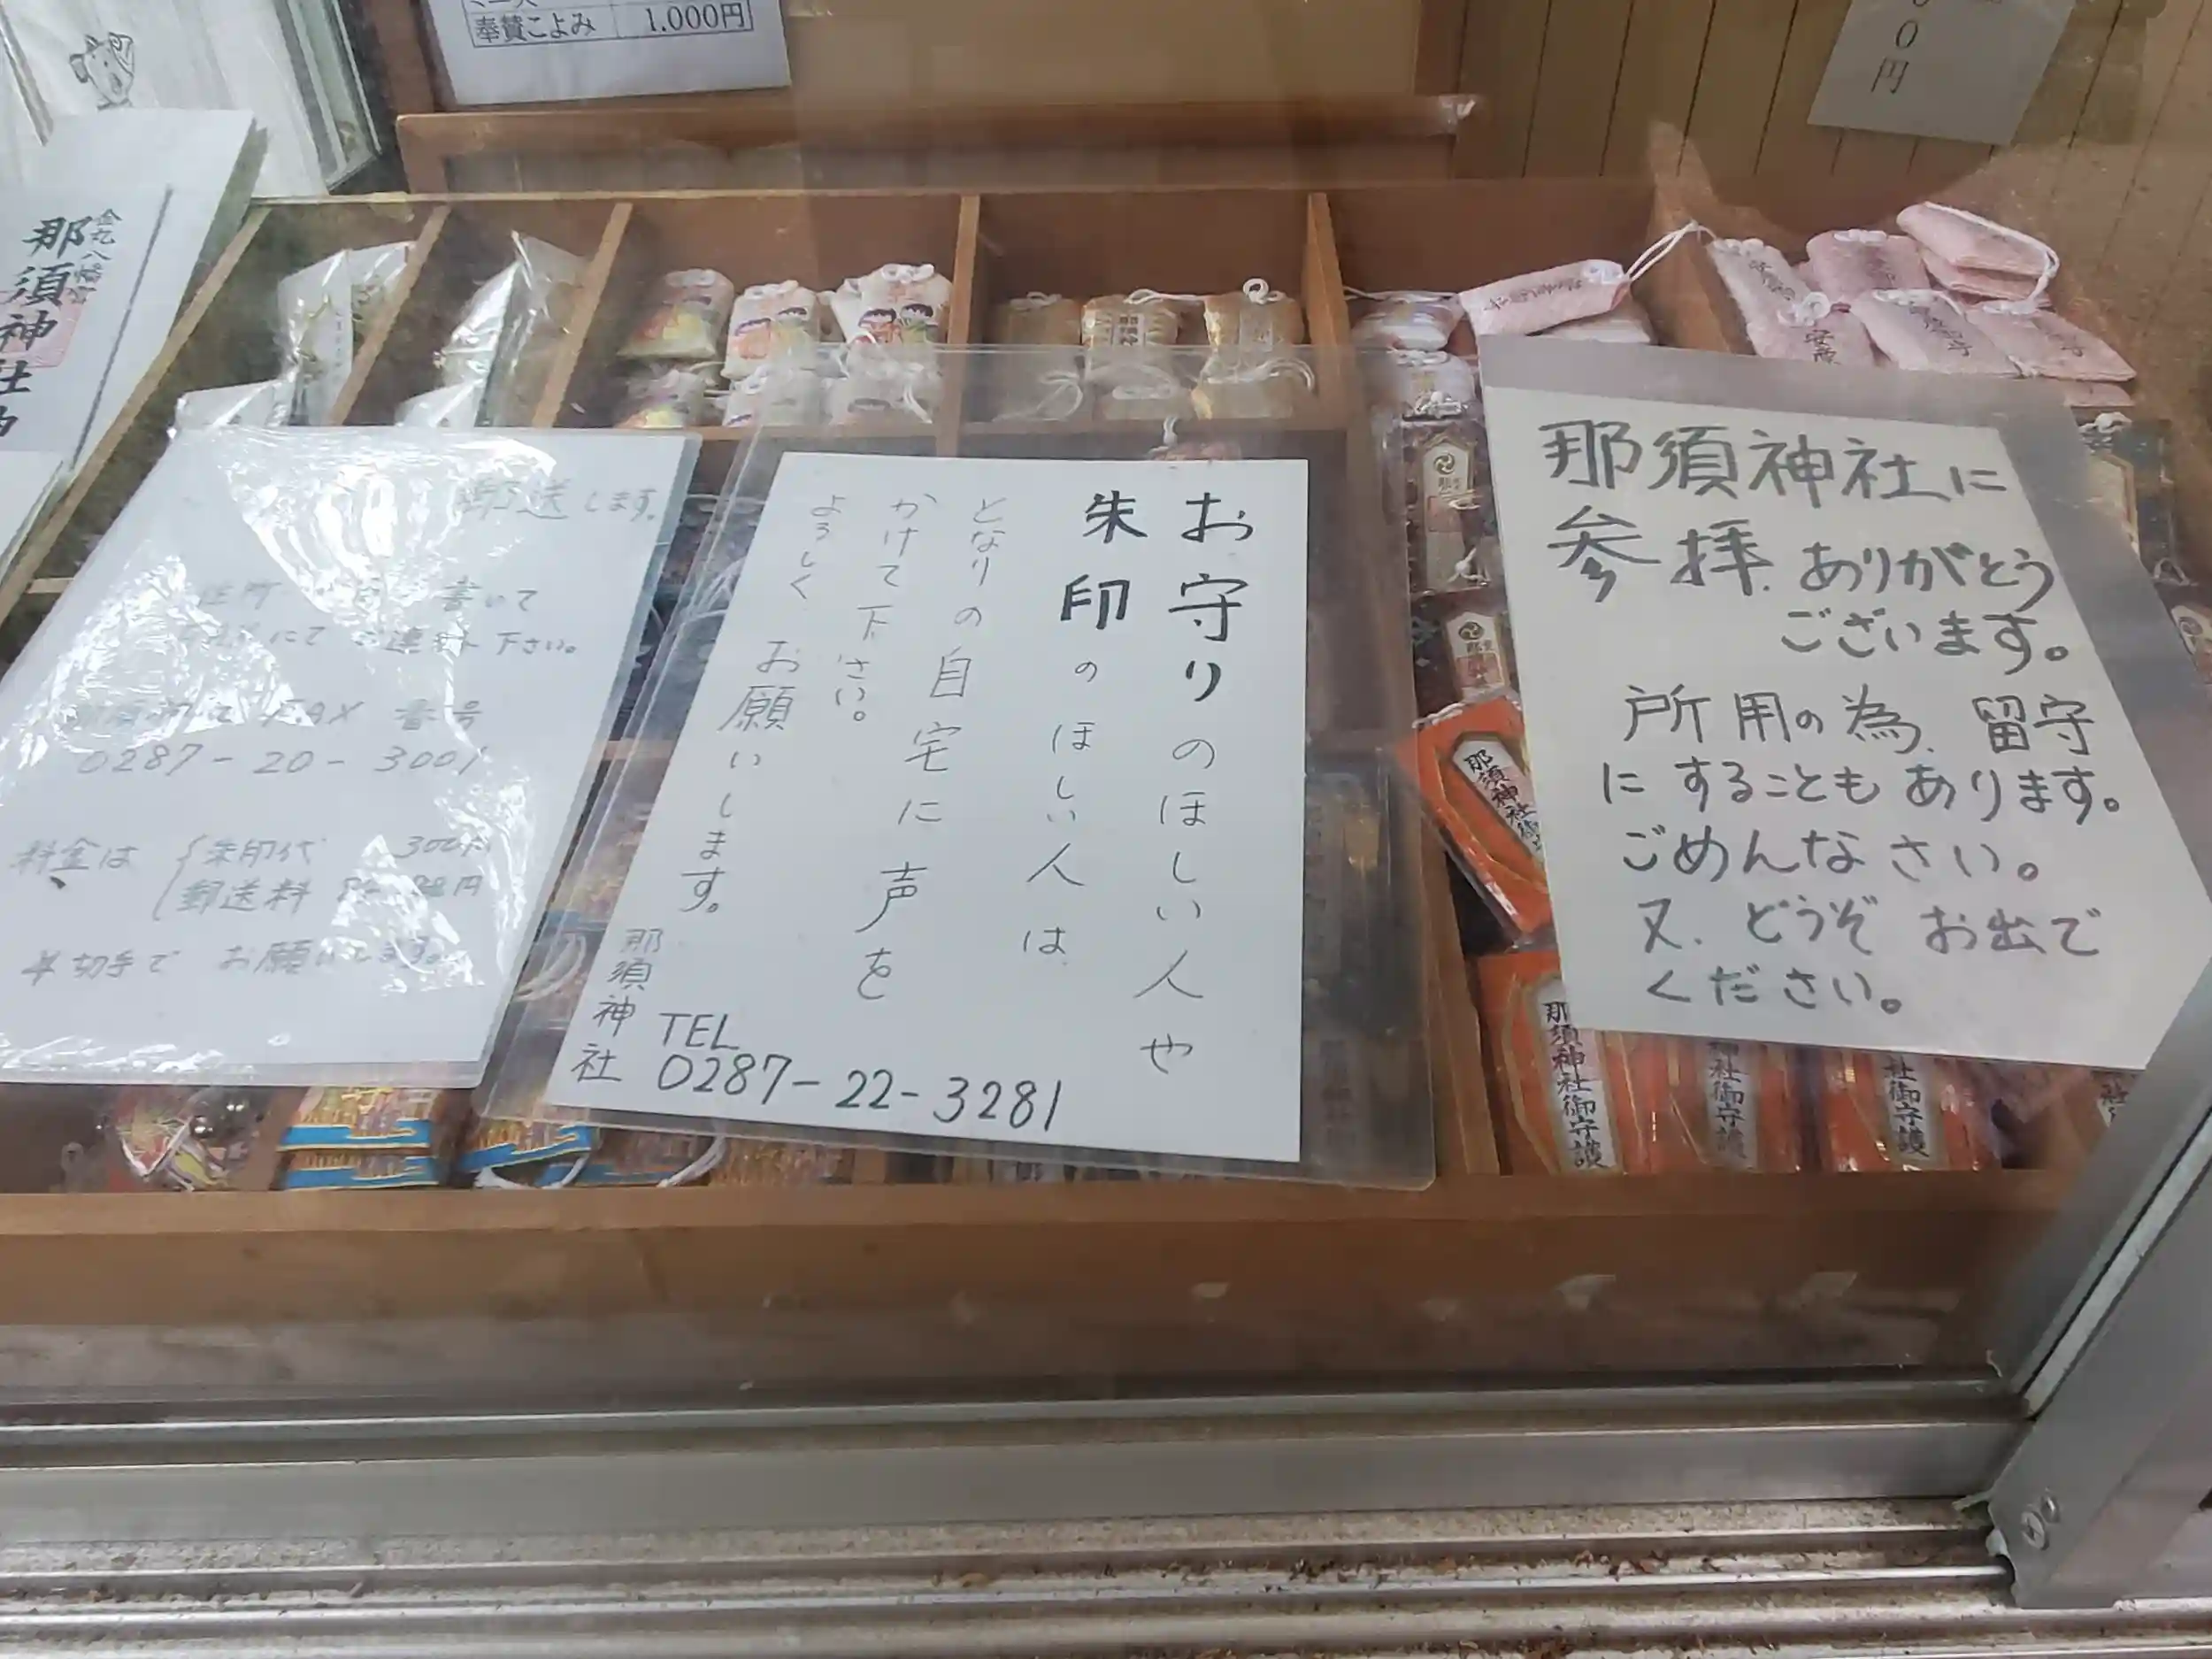 奉賛こよみ 1,000円
0円
金丸八幡宮
那須神社
郵送します。
住所 書いて
にて ご連絡下さい。
FAX 番号
0287-20-3001
料金は
朱印代 300円
郵送料 円
切手で お願いします。
お守りのほしい人や
朱印のほしい人は、
となりの自宅に声を
かけて下さい。
よろしく お願いします。
那須神社
TEL
0287-22-3281
那須神社に
参拝、ありがとう
ございます。
所用の為、留守
にすることもあります。
ごめんなさい。
又、どうぞ お出で
ください。
那須神社御
那須神社御守護
神社御守護
社御守護
社